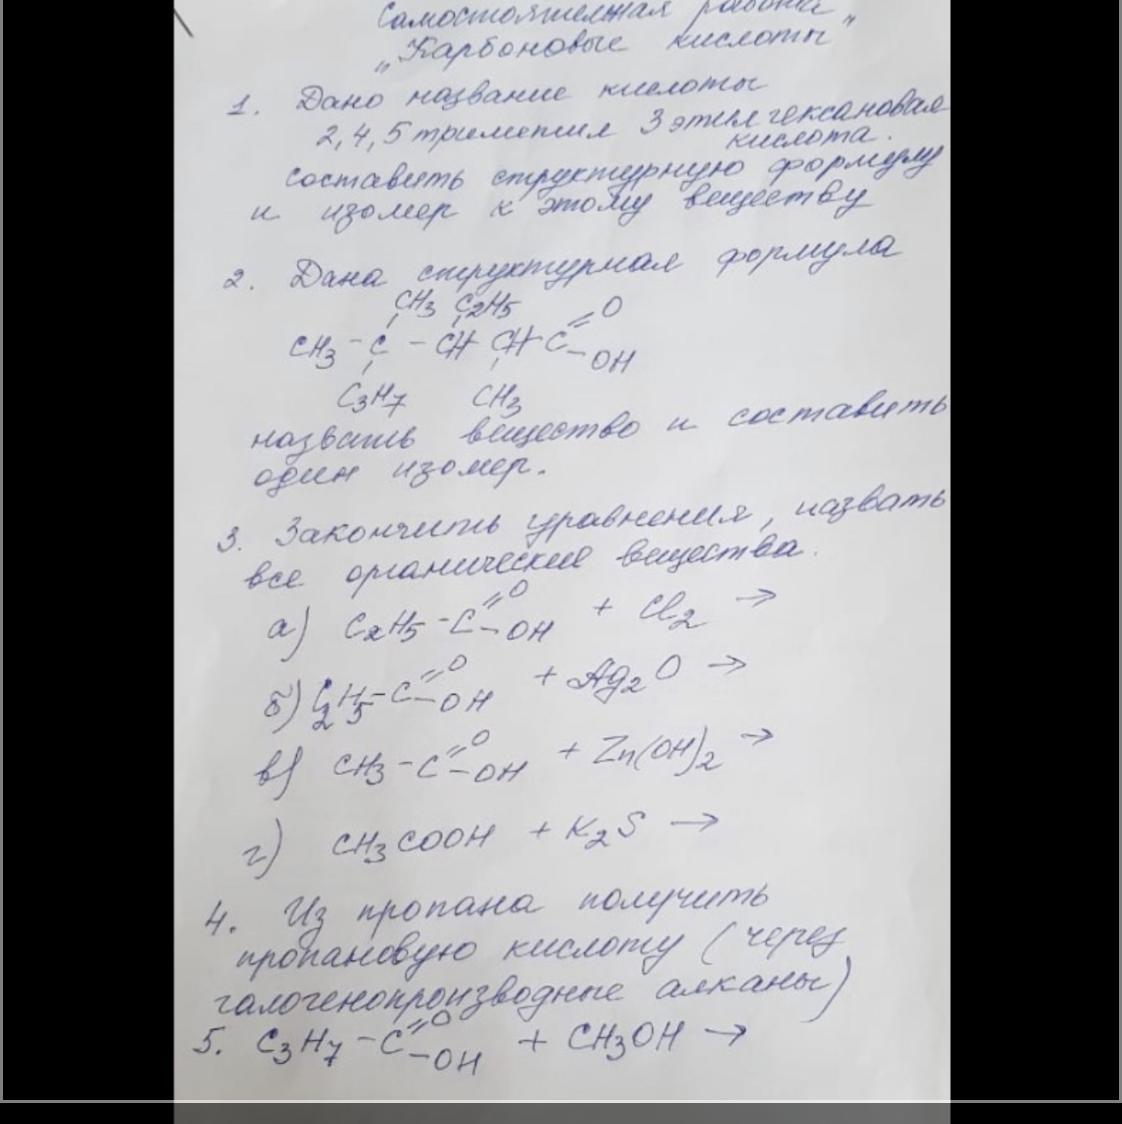 Самостоятельная работа
„Карбоновые кислоты"
1. Дано название кислоты
2,4,5 триметил 3 этил гексановая
кислота.
составить структурную формулу
и изомер к этому веществу
2. Дана структурная формула
CH3 C2H5 O
CH3 - C - CH CH C = - OH
C3H7 CH3
назвать вещество и составить
один изомер.
3. Закончить уравнения, назвать
все органические вещества.
а) C2H5 - C =O - OH + Cl2 →
б) C2H5 - C =O - OH + Ag2O →
в) CH3 - C =O - OH + Zn(OH)2 →
г) CH3COOH + K2S →
4. Из пропана получить
пропановую кислоту (через
галогенопроизводные алканы)
5. C3H7 - C =O - OH + CH3OH →